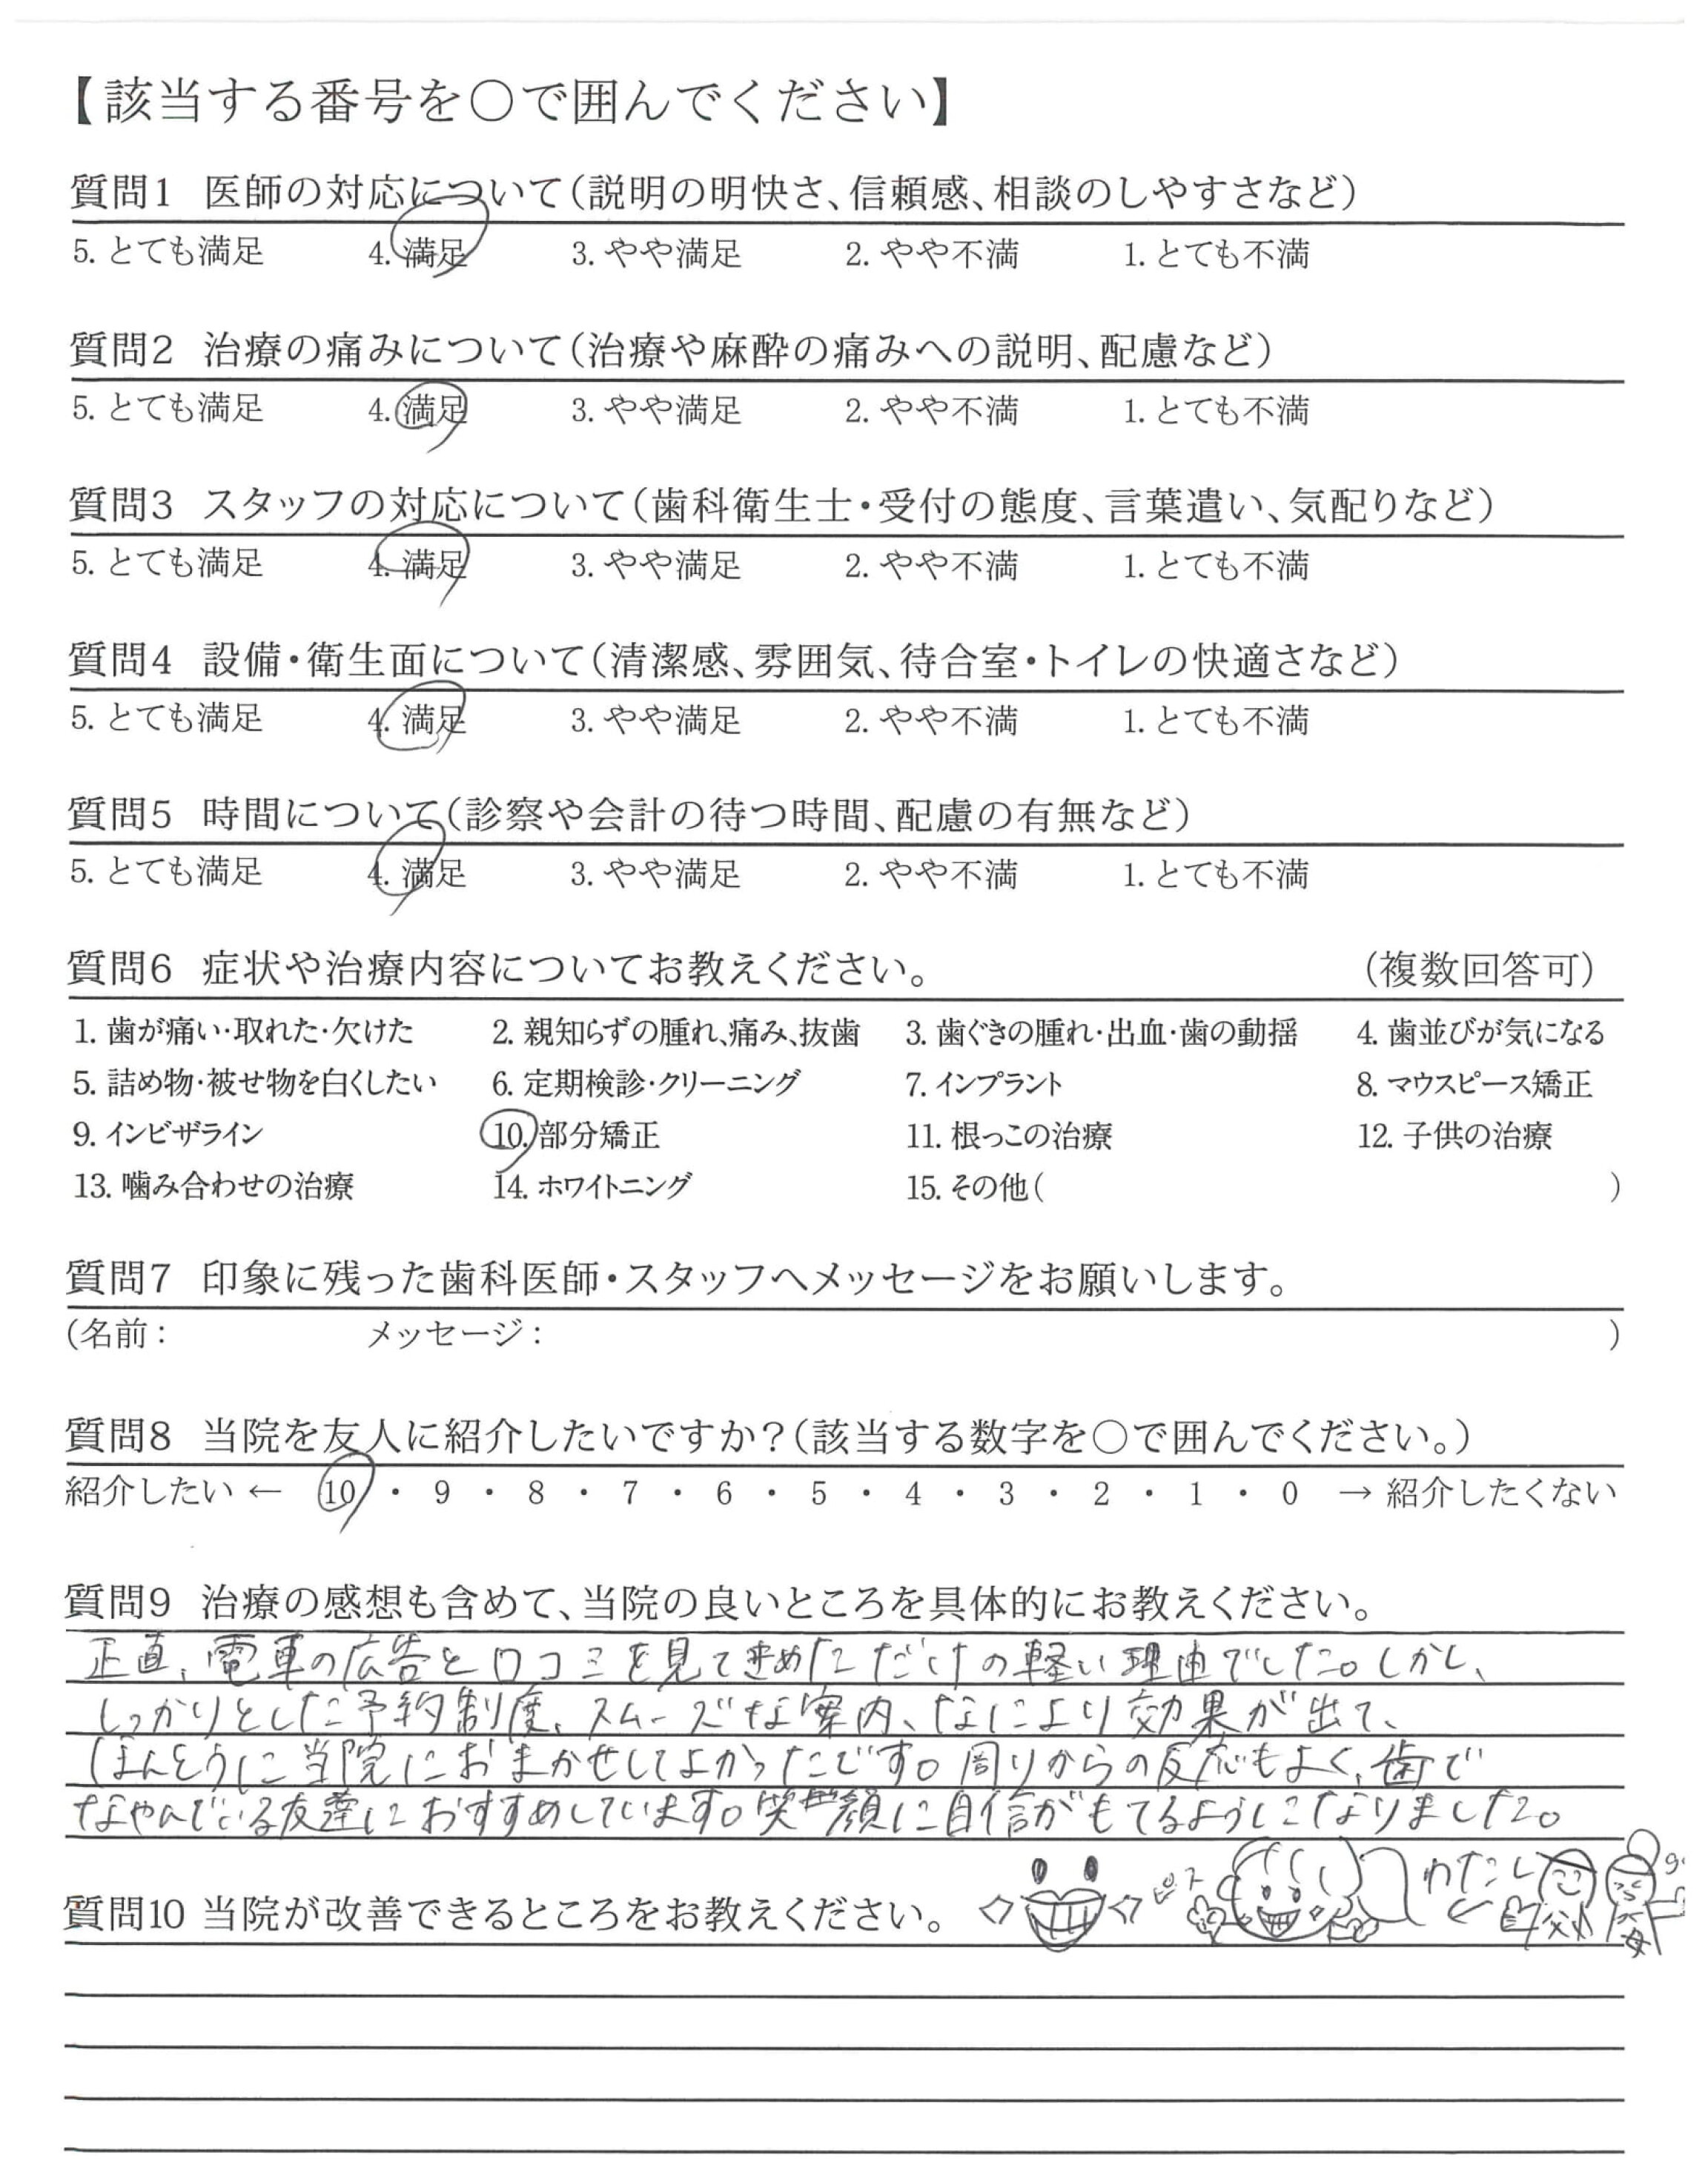 【該当する番号を〇で囲んでください】
質問1 医師の対応について（説明の明快さ、信頼感、相談のしやすさなど）
5. とても満足 4. 満足 3. やや満足 2. やや不満 1. とても不満
質問2 治療の痛みについて（治療や麻酔の痛みへの説明、配慮など）
5. とても満足 4. 満足 3. やや満足 2. やや不満 1. とても不満
質問3 スタッフの対応について（歯科衛生士・受付の態度、言葉遣い、気配りなど）
5. とても満足 4. 満足 3. やや満足 2. やや不満 1. とても不満
質問4 設備・衛生面について（清潔感、雰囲気、待合室・トイレの快適さなど）
5. とても満足 4. 満足 3. やや満足 2. やや不満 1. とても不満
質問5 時間について（診察や会計の待つ時間、配慮の有無など）
5. とても満足 4. 満足 3. やや満足 2. やや不満 1. とても不満
質問6 症状や治療内容についてお教えください。 （複数回答可）
1. 歯が痛い・取れた・欠けた 2. 親知らずの腫れ、痛み、抜歯 3. 歯ぐきの腫れ・出血・歯の動揺 4. 歯並びが気になる
5. 詰め物・被せ物を白くしたい 6. 定期検診・クリーニング 7. インプラント 8. マウスピース矯正
9. インビザライン 10. 部分矯正 11. 根っこの治療 12. 子供の治療
13. 噛み合わせの治療 14. ホワイトニング 15. その他（ ）
質問7 印象に残った歯科医師・スタッフへメッセージをお願いします。
（名前： メッセージ： ）
質問8 当院を友人に紹介したいですか？（該当する数字を〇で囲んでください。）
紹介したい ← 10 ・ 9 ・ 8 ・ 7 ・ 6 ・ 5 ・ 4 ・ 3 ・ 2 ・ 1 ・ 0 → 紹介したくない
質問9 治療の感想も含めて、当院の良いところを具体的にお教えください。
正直、電車の広告と口コミを見てきめただけの軽い理由でした。しかし、
しっかりとした予約制度、スムーズな案内、なにより効果が出て、
ほんとうに当院におまかせしてよかったです。周りからの反応もよく、歯で
なやんでいる友達におすすめしています。笑顔に自信がもてるようになりました。
わたし
父 母
質問10 当院が改善できるところをお教えください。